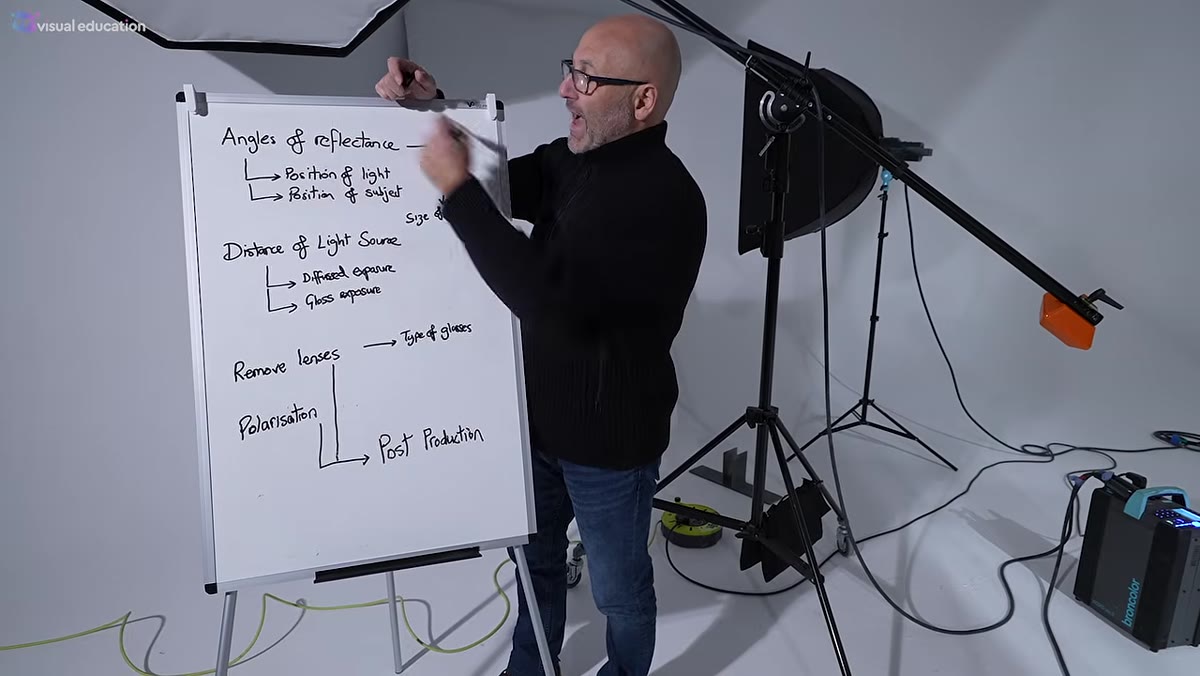 visual education
Angles of reflectance
Position of light
Position of subject
Size of
Distance of Light Source
Diffused exposure
Gloss exposure
Type of glasses
Remove lenses
Polarisation
Post Production
broncolor